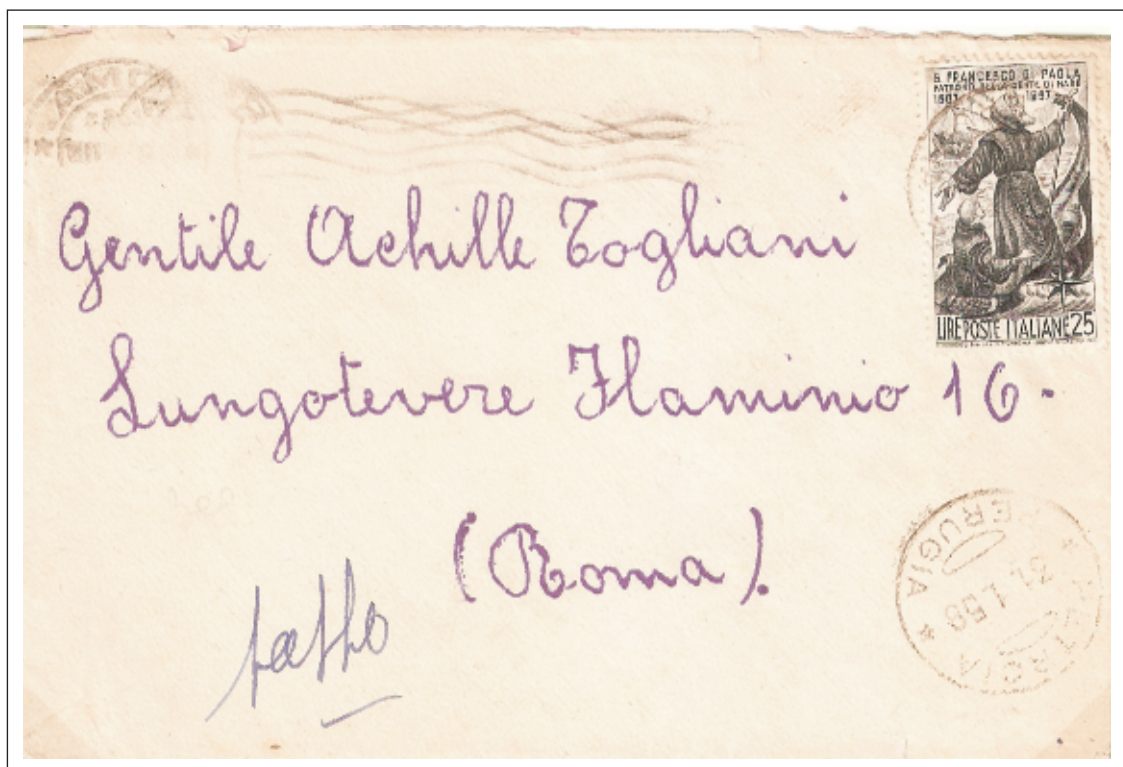 S. FRANCESCO DI PAOLA
PATRONO DELLA GENTE DI MARE
1507 1957
LIRE POSTE ITALIANE 25
Gentile Achille Togliani
Lungotevere Flaminio 16.
(Roma).
PERUGIA